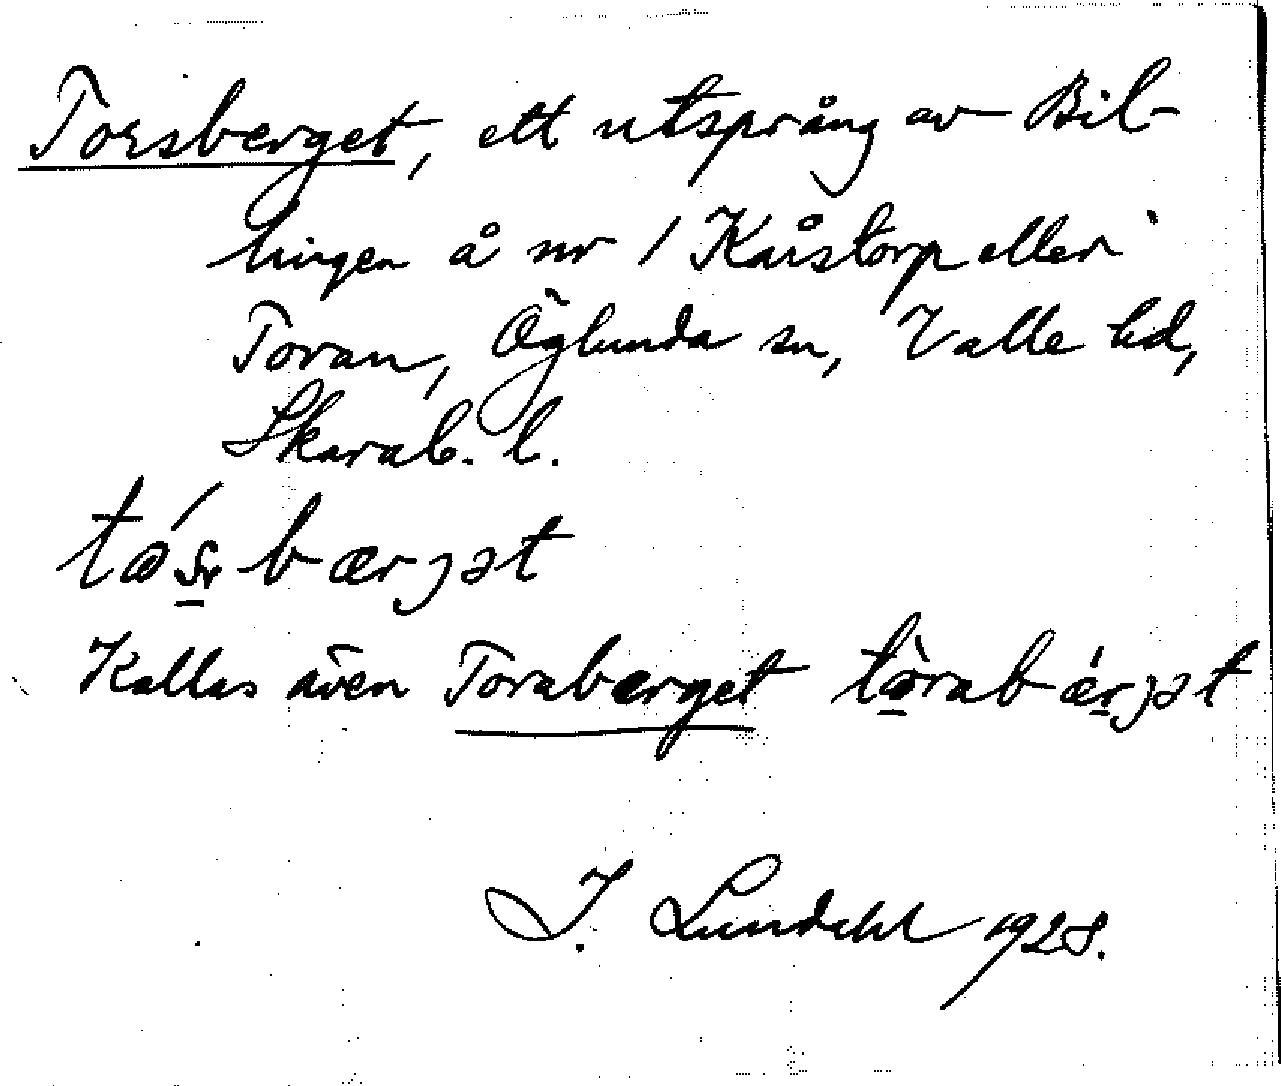 Torsberget, ett utsprång av Bil-
lingen å nr 1 Kårstorp eller
Toran, Öglunda sn, Valle hd,
Skarab. l.
Kallas även Toraberget
I. Lundahl 1928.